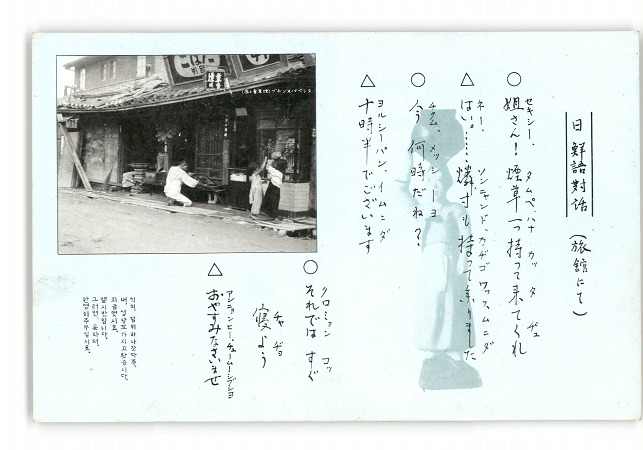 日鮮語對話 (旅館にて)
セキシー、 タムペハナ カッタ チュ
○ 姐さん!煙草一つ持って来てくれ
ネー、 ソンニャンド、カヂゴ ワッスムニダ
△ はい。……燐寸も持って参りました
チグム、メッシーヨ
○ 今、何時だね?
ヨルシーパン、イムニダ
△ 十時半でございます
クロミョン コッ
○ それでは すぐ
チャヂョ
寝よう
アンニョンヒー、チュームーシプシヨ
△ おやすみなさいませ
지금 몃시요
열시반입니다
그러면 곳자저